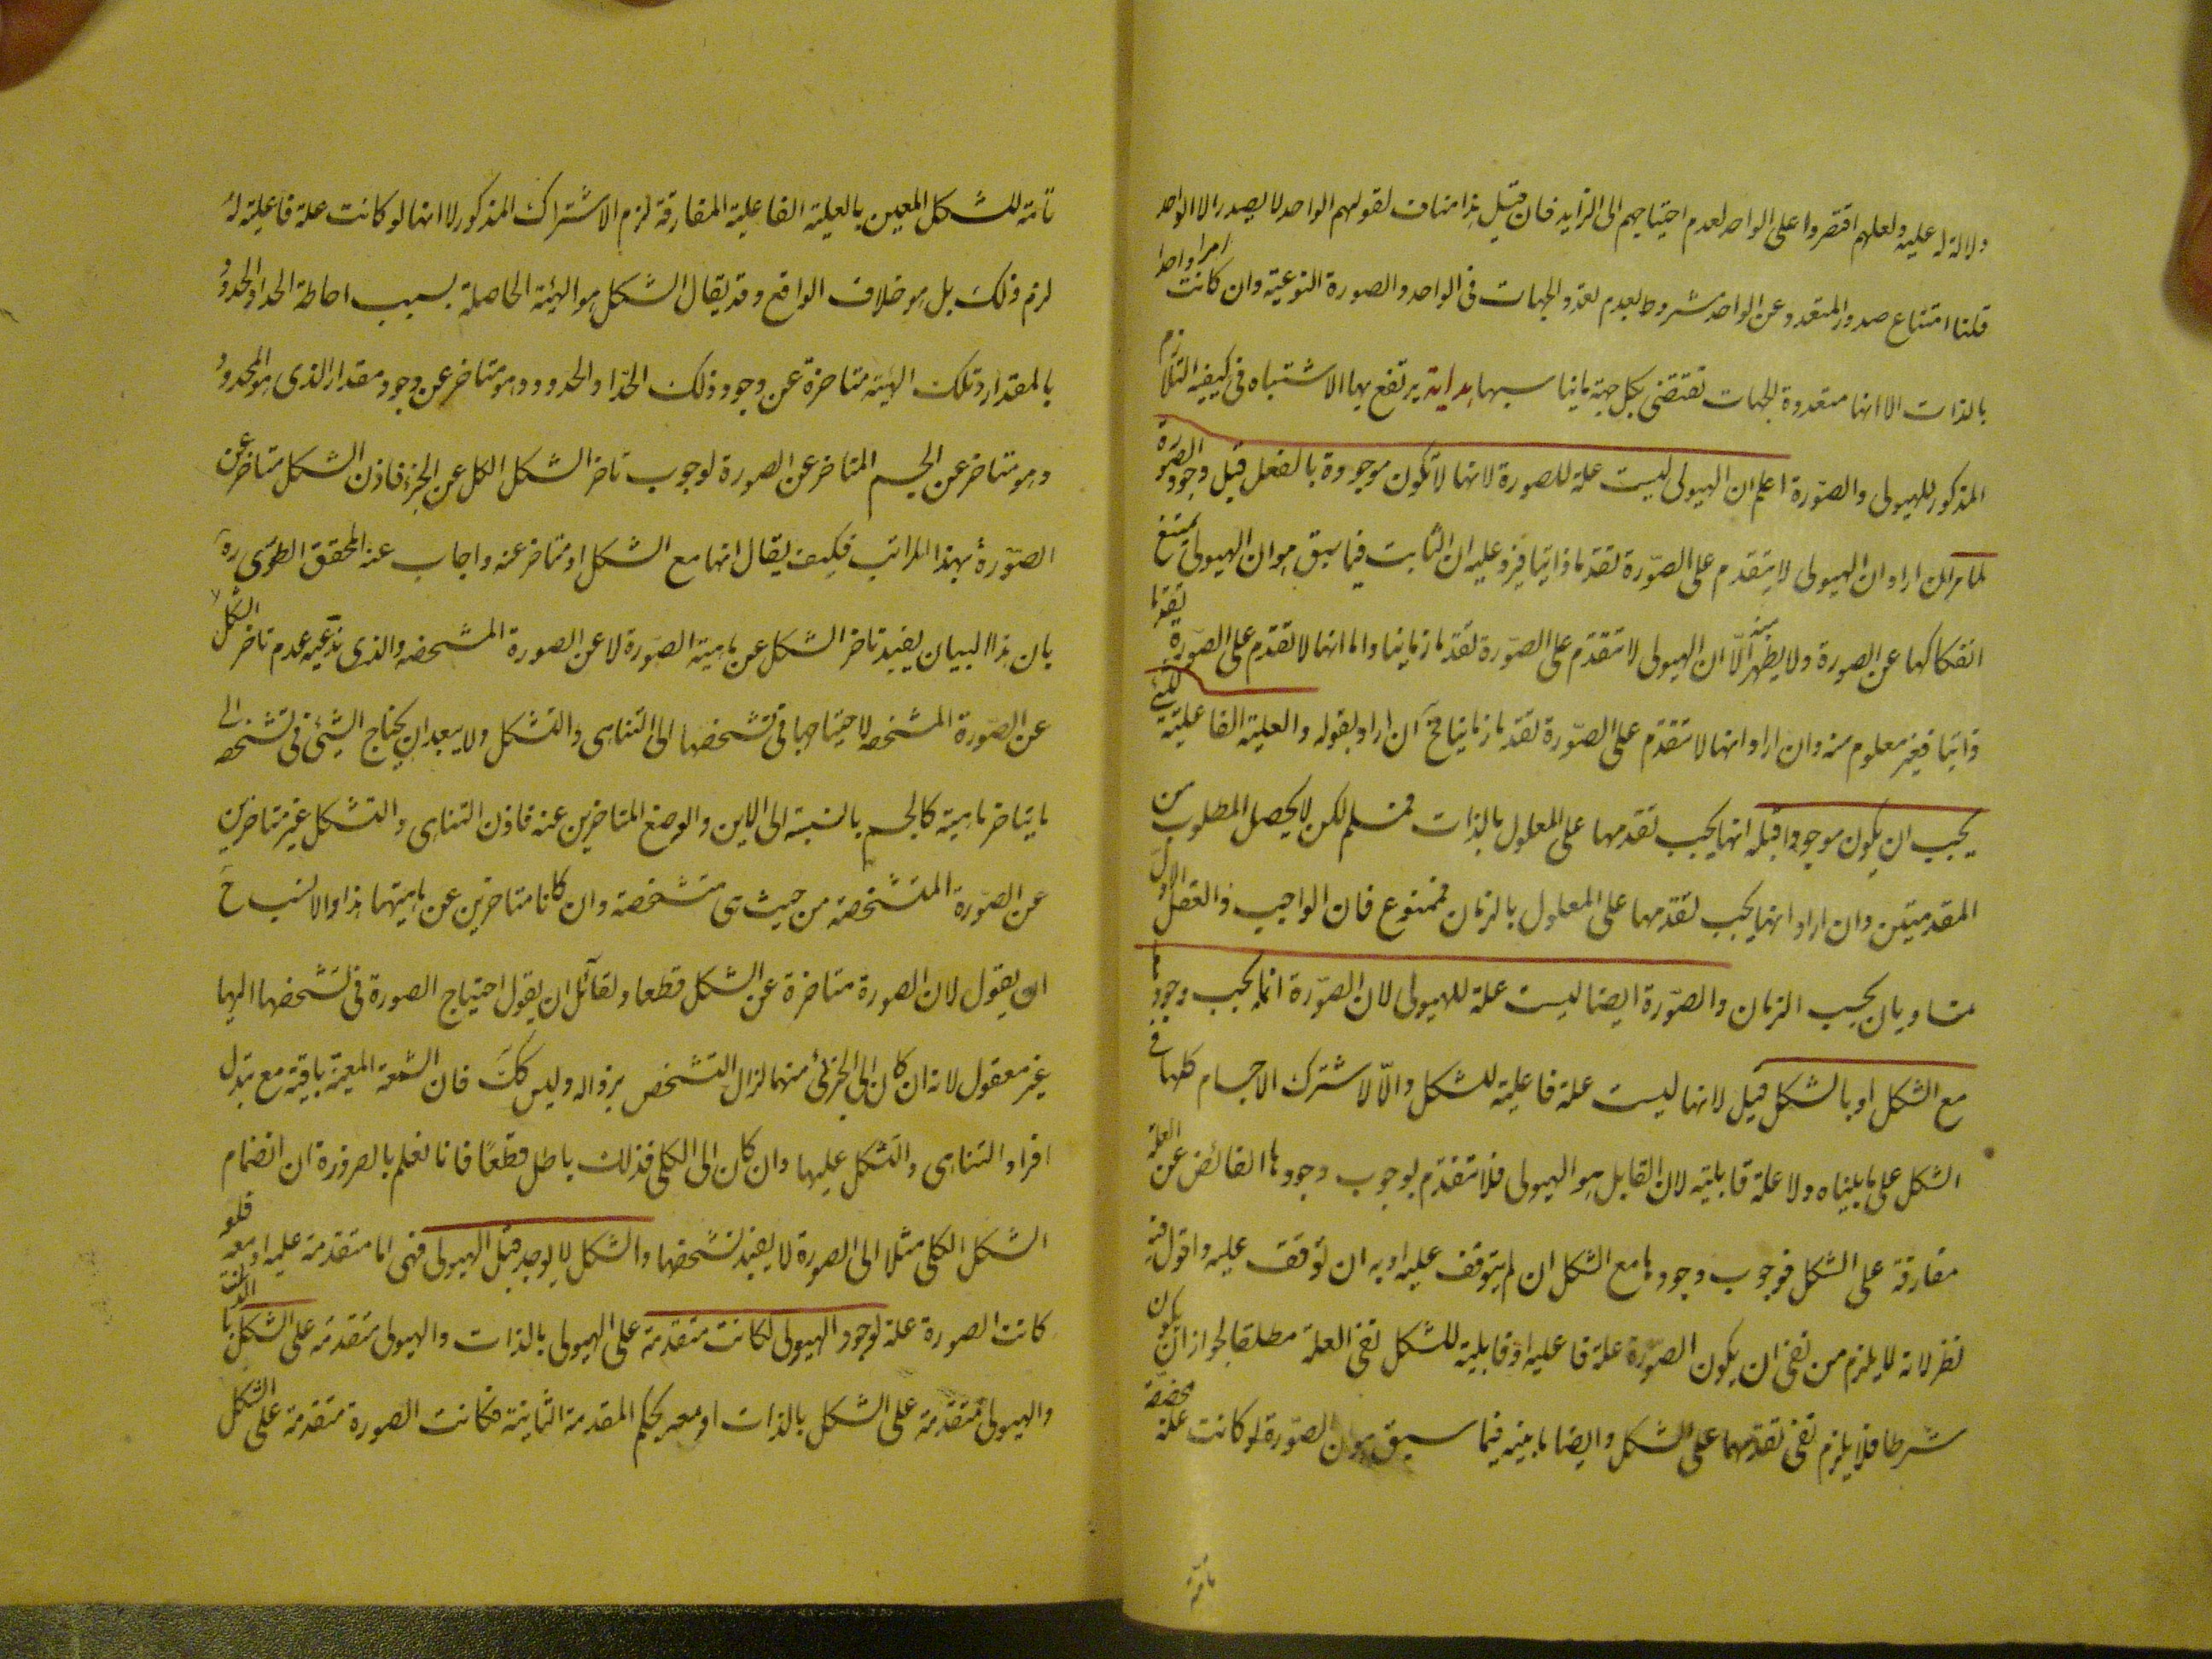 دلالة له عليه ولعلهم اقتصروا على الواحد لعدم احتياجهم الى الزايد فان قيل هذا مناف لقولهم الواحد لا يصدر الا الواحد
قلنا امتناع صدور المتعدد عن الواحد مشروط بعدم تعدد الجهات فى الواحد والصورة النوعية وان كانت امرا واحدا
بالذات الا انها متعددة الجهات تقتضى بكل جهة ما يناسبها هداية يرتفع بها الاشتباه فى كيفية التلازم
المذكور للهيولى والصورة اعلم ان الهيولى ليست علة للصورة لانها لا تكون موجودة بالفعل قبل وجود الصورة
لما مر ان اراد ان الهيولى لا يتقدم على الصورة تقدما ذاتيا فيرد عليه ان الثابت فيما سبق هو ان الهيولى يمتنع
انفكاكها عن الصورة ولا يظهر منه الا ان الهيولى لا تتقدم على الصورة تقدما زمانيا واما انها لا تقدم على الصورة تقدما
ذاتيا فغير معلوم منه وان اراد انها لا تتقدم على الصورة تقدما زمانيا فح ان اراد بقوله والعلية الفاعلية للشئ
يجب ان يكون موجودا قبله انها يجب تقدمها على المعلول بالذات فمسلم لكن لا يحصل المطلوب من
المقدمتين وان اراد انها يجب تقدمها على المعلول بالزمان فممنوع فان الواجب والعقل الاول
متساويان بحسب الزمان والصورة ايضا ليست علة للهيولى لان الصورة انما يجب وجودها
مع الشكل او بالشكل قيل لانها ليست علة فاعلية للشكل والا لاشترك الاجسام كلها فى
الشكل على ما بيناه ولا علة قابلية لان القابل هو الهيولى فلا تتقدم لوجوب وجودها الفائض عن العلة
مفارقة على الشكل فوجوب وجودها مع الشكل ان لم يتوقف عليه او به ان توقف عليه واقول فيه
نظر لانه لا يلزم من نفى ان يكون الصورة علة فاعلية او قابلية للشكل نفى العلة مطلقا لجواز ان يكون
شرطا فلا يلزم نفى تقدمها على الشكل وايضا ما بينه فيما سبق هو ان الصورة لو كانت علة مخصصة
تامة
تامة للشكل المعين بالعلية الفاعلية المفارقة لزم الاشتراك المذكور لا انها لو كانت علة فاعلية له
لزم ذلك بل هو خلاف الواقع وقد يقال الشكل هو الهيئة الحاصلة بسبب احاطة الحد او الحدود
بالمقدار وتلك الهيئة متاخرة عن وجود ذلك الحد او الحدود وهو متاخر عن وجود مقدار الذى هو المحدود
وهو متاخر عن الجسم المتاخر عن الصورة لوجوب تاخر الشكل الكل عن الجزء فاذن الشكل متاخر عن
الصورة بهذا المراتب فكيف يقال انها مع الشكل او متاخر عنه واجاب عنه المحقق الطوسى ره
بان هذا البيان يفيد تاخر الشكل عن ماهية الصورة لا عن الصورة المشخصة والذى ندعيه عدم تاخر الشكل
عن الصورة المشخصة لاحتياجها فى تشخصها الى التناهى والتشكل ولا يبعد ان يحتاج الشئ فى تشخصه الى
ما يتاخر ماهيته كالجسم بالنسبة الى الاين والوضع المتاخرين عنه فاذن التناهى والتشكل غير متاخرين
عن الصورة المتشخصة من حيث هى متشخصة وان كانا متاخرين عن ماهيتها هذا والانسب ح
ان يقول لان الصورة متاخرة عن الشكل قطعا ولقائل ان يقول احتياج الصورة فى تشخصها اليها
غير معقول لانه ان كان الى الجزئى منهما لزال التشخص بزواله وليس كك فان الشمعة المعينة باقية مع تبدل
افراد التناهى والتشكل عليها وان كان الى الكلى فذلك باطل قطعا فانا نعلم بالضرورة ان انضمام
الشكل الكلى مثلا الى الصورة لا يفيد تشخصها والشكل لا يوجد قبل الهيولى فهى اما متقدمة عليه او معه فلو
كانت الصورة علة لوجود الهيولى لكانت متقدمة على الهيولى بالذات والهيولى متقدمة على الشكل بالذات
والهيولى متقدمة على الشكل بالذات او معه بحكم المقدمة الثانية فكانت الصورة متقدمة على الشكل